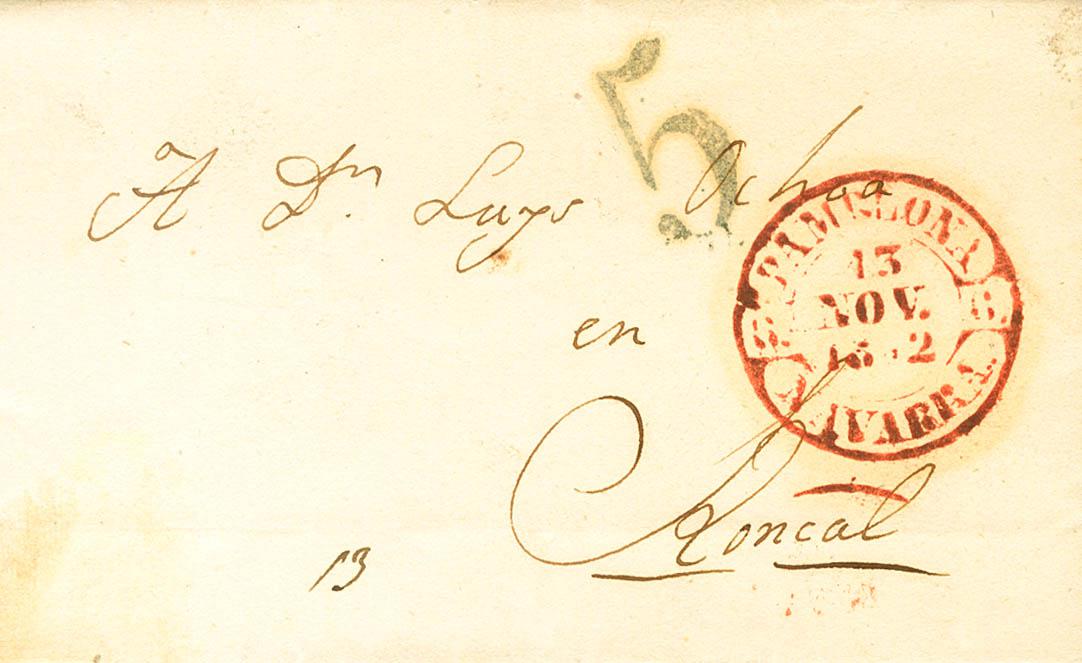 5
A Dn. Luys Ochoa
en
Roncal
13
PAMPLONA
13
NOV.
NAVARRA.